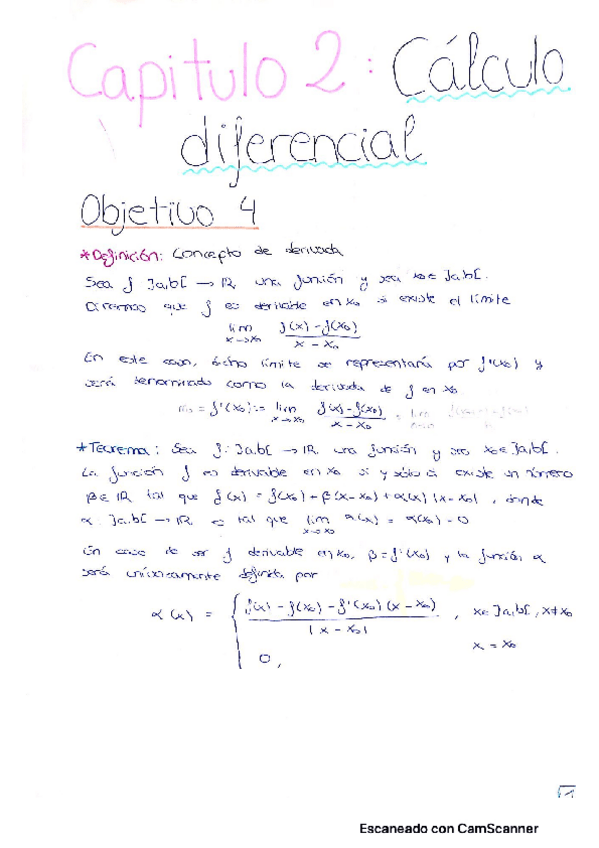 Capitulo 2: Cálculo
diferencial
Objetivo 4
*Definición: Concepto de derivada
Sea f ]a,b[ → IR una función y sea x₀ ∈ ]a,b[.
Diremos que f es derivable en x₀ si existe el límite
lim x→x₀ f(x) - f(x₀) / x - x₀
En este caso, dicho límite se representará por f'(x₀) y
será denominado como la derivada de f en x₀
= f'(x₀) := lim x→x₀ f(x) - f(x₀) / x - x₀ = lim
*Teorema: Sea f: ]a,b[ → IR una función y sea x₀ ∈ ]a,b[.
La función f es derivable en x₀ si y sólo si existe un número
β ∈ IR tal que f(x) = f(x₀) + β(x - x₀) + α(x) |x - x₀|, donde
α ]a,b[ → IR es tal que lim x→x₀ α(x) = α(x₀) = 0
En caso de ser f derivable en x₀, β = f'(x₀) y la función α
será definida por
α(x) = { f(x) - f(x₀) - f'(x₀)(x - x₀) / |x - x₀| , x ∈ ]a,b[, x ≠ x₀
0, x = x₀
Escaneado con CamScanner